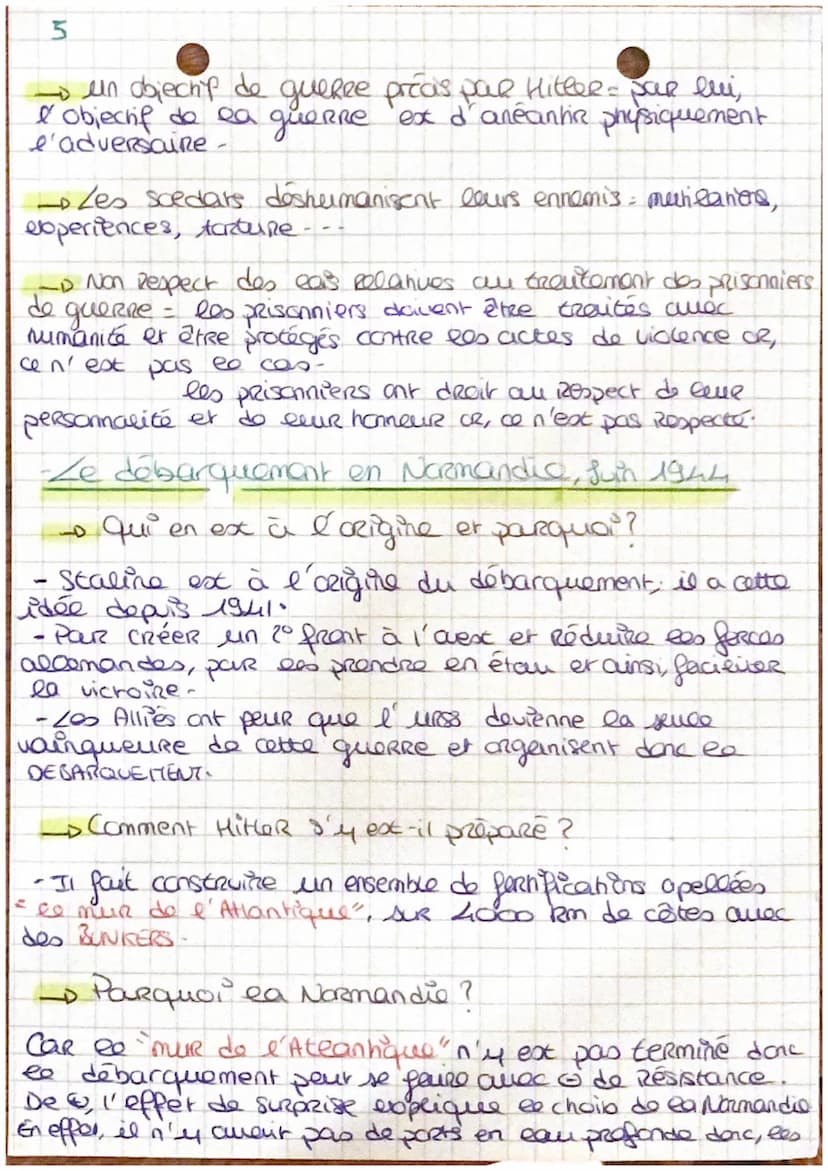 5
→ un objectif de guerre précis par Hitler = par lui,
l'objectif de la guerre est d'anéantir physiquement
l'adversaire -
→ Les soldats déshumanisent leurs ennemis : mutilations,
expériences, torture ---
→ Non respect des lois relatives au traitement des prisonniers
de guerre = les prisonniers doivent être traités avec
humanité et être protégés contre les actes de violence or,
ce n'est pas le cas -
les prisonniers ont droit au respect de leur
personnalité et de leur honneur or, ce n'est pas respecté.
- Le débarquement en Normandie, Juin 1944
→ Qui en est à l'origine et pourquoi ?
- Staline est à l'origine du débarquement, il a cette
idée depuis 1941.
- Pour créer un 2e front à l'ouest et réduire les forces
allemandes, pour les prendre en étau et ainsi, faciliter
la victoire -
- Les Alliés ont peur que l'URSS devienne la seule
vainqueure de cette guerre et organisent donc le
DEBARQUEMENT.
→ Comment Hitler s'y est-il préparé ?
- Il fait construire un ensemble de fortifications apellées
"le mur de l'Atlantique", sur 4000 km de côtes avec
des BUNKERS -
→ Pourquoi la Normandie ?
Car le "mur de l'Atlantique" n'y est pas terminé donc
le débarquement peut se faire avec ⊖ de Résistance.
De ⊕, l'effet de surprise explique le choix de la Normandie
En effet, il n'y avait pas de ports en eau profonde donc, les